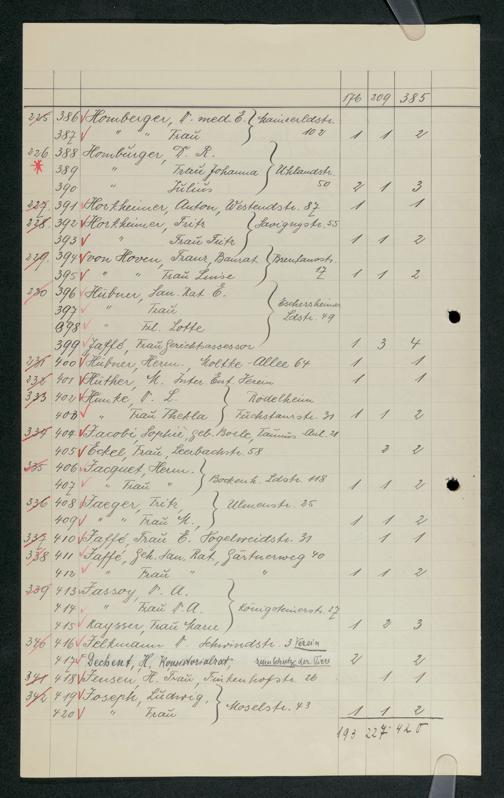 176 209 385
225 386 Homberger, Dr. med. E. } Mainzerldstr.
387 " " Frau 102 1 1 2
226 388 Homburger, Dr. R.
389 " Frau Johanna } Uhlandstr.
390 " Julius 50 2 1 3
227. 391 Horkheimer, Anton, Westendstr. 87 1 1
228. 392 Horkheimer, Fritz } Savignystr. 55
393 " Frau Fritz 1 1 2
229 394 von Hoven, Franz, Baurat } Brentanostr.
395 " " Frau Luise 17 1 1 2
230 396 Hübner, San. Rat E.
397 " Frau } Eschersheimer
398 " Frl. Lotte Ldstr. 49
399 Jaffé, Frau Gerichtsassessor 1 3 4
231 400 Hübner, Herm., Moltke-Allee 64 1 1
232 401 Hüther, M. Inter. Ent. Verein 1 1
233 402 Humke, Dr. L. } Rödelheim
403 " Frau Thekla Fuchstanzstr. 31 1 1 2
334 404 Jacobi, Sophie, geb. Bolle, Taunus-Anl. 21
405 Eckel, Frau, Leerbachstr. 58 2 2
335 406 Jacquet, Herm. } Bockenh. Ldstr. 118
407 " Frau " 1 1 2
336 408 Jaeger, Fritz, } Ulmenstr. 25
409 " " Frau M., 1 1 2
337 410 Jaffé, Frau E. Vogelweidstr. 31 1 1
338 411 Jaffé, Geh. San. Rat, Gärtnerweg 40
412 " Frau " " 1 1 2
339 413 Jassoy, Dr. A.
414 " Frau Dr. A. } Königsteinerstr. 27
415 Kaysser, Frau Marie 1 2 3
340 416 Jelkmann Dr. Schwindstr. 3 Verein
417 Dechent, H, Konsistorialrat, zum Schutz der Tiere 2 2
341 418 Jensen, H. Frau, Finkenhofstr. 26 1 1
342 419 Joseph, Ludwig, } Moselstr. 43
420 " Frau 1 1 2
193 227 420